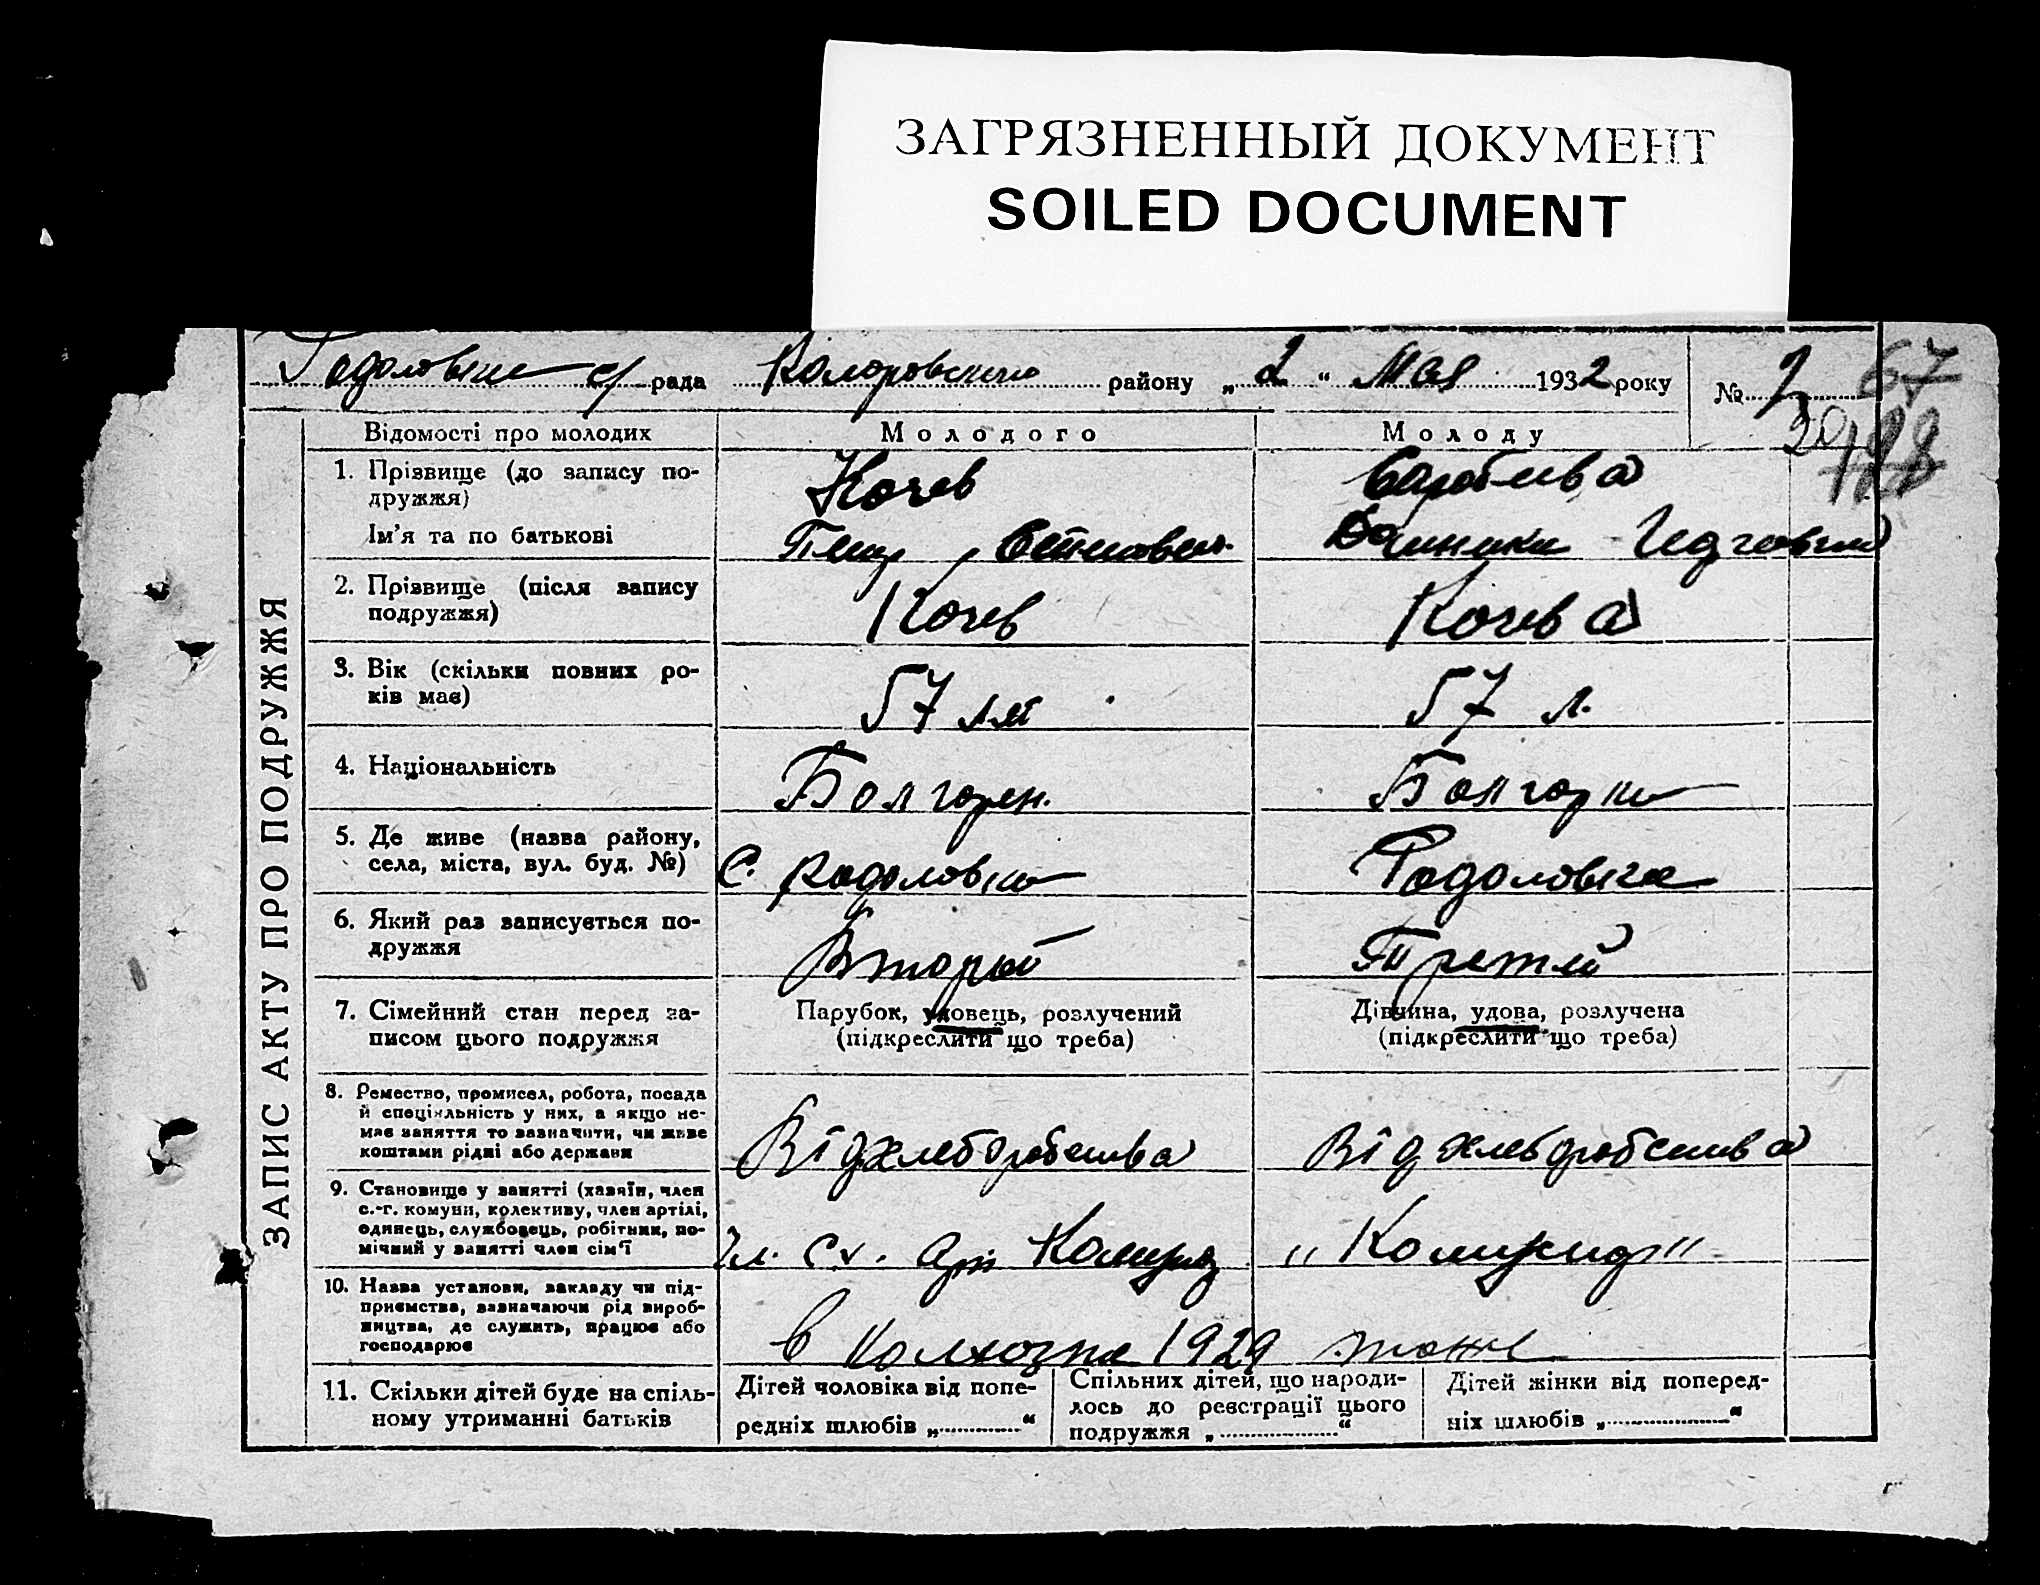 ЗАГРЯЗНЕННЫЙ ДОКУМЕНТ
SOILED DOCUMENT
Радоловка с/ рада Коларовского району „ 2 “ Мая 1932 року № 7
67
ЗАПИС АКТУ ПРО ПОДРУЖЖЯ
Відомості про молодих Молодого Молоду
1. Прізвище (до запису по-
дружжя)
Кочев
Ім'я та по батькові
2. Прізвище (після запису
подружжя)
Кочев Кочева
3. Вік (скільки повних ро-
ків має)
57 лет 57 л.
4. Національність
Болгарин. Болгарка
5. Де живе (назва району,
села, міста, вул. буд. №)
С. Радоловка Радоловка
6. Який раз записується по-
дружжя
Второй Третий
7. Сімейний стан перед за-
писом цього подружжя
Парубок, удовець, розлучений
(підкреслити що треба)
Дівчина, удова, розлучена
(підкреслити що треба)
8. Ремество, промисел, робота, посада
й спеціяльність у них, а якщо не-
має заняття то зазначити, чи живе
коштами рідні або держави
Від хлеборобства Від хлеборобства
9. Становище у занятті (хазяїн, член
с.-г. комуни, колективу, член артілі,
одинець, службовець, робітник, по-
мічний у занятті член сім'ї
Чл. Сх. Арт
10. Назва установи, закладу чи під-
приємства, зазначаючи рід вироб-
ництва, де служить, працює або
господарює
в колхозе 1929 тоже
11. Скільки дітей буде на спіль-
ному утриманні батьків
Дітей чоловіка від попе-
редніх шлюбів „ “
Спільних дітей, що народи-
лось до реєстрації цього
подружжя „ “
Дітей жінки від поперед-
ніх шлюбів „ “